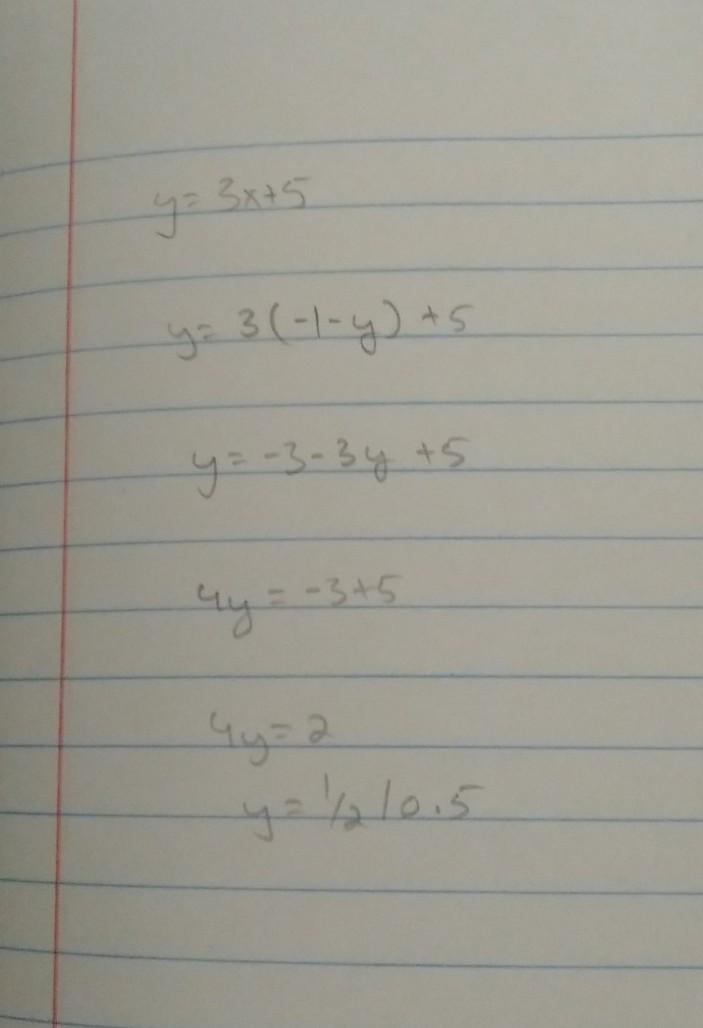 y=3x+5
y=3(-1-y)+5
y=-3-3y+5
4y=-3+5
4y=2
y=1/2/0.5